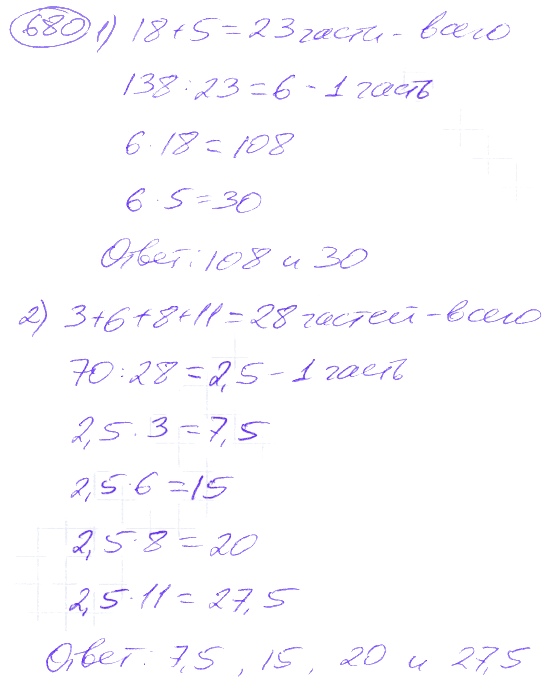 680 1) 18+5=23 части - всего
138:23=6 - 1 часть
6·18=108
6·5=30
Ответ: 108 и 30
2) 3+6+8+11=28 частей - всего
70:28=2,5 - 1 часть
2,5·3=7,5
2,5·6=15
2,5·8=20
2,5·11=27,5
Ответ: 7,5, 15, 20 и 27,5